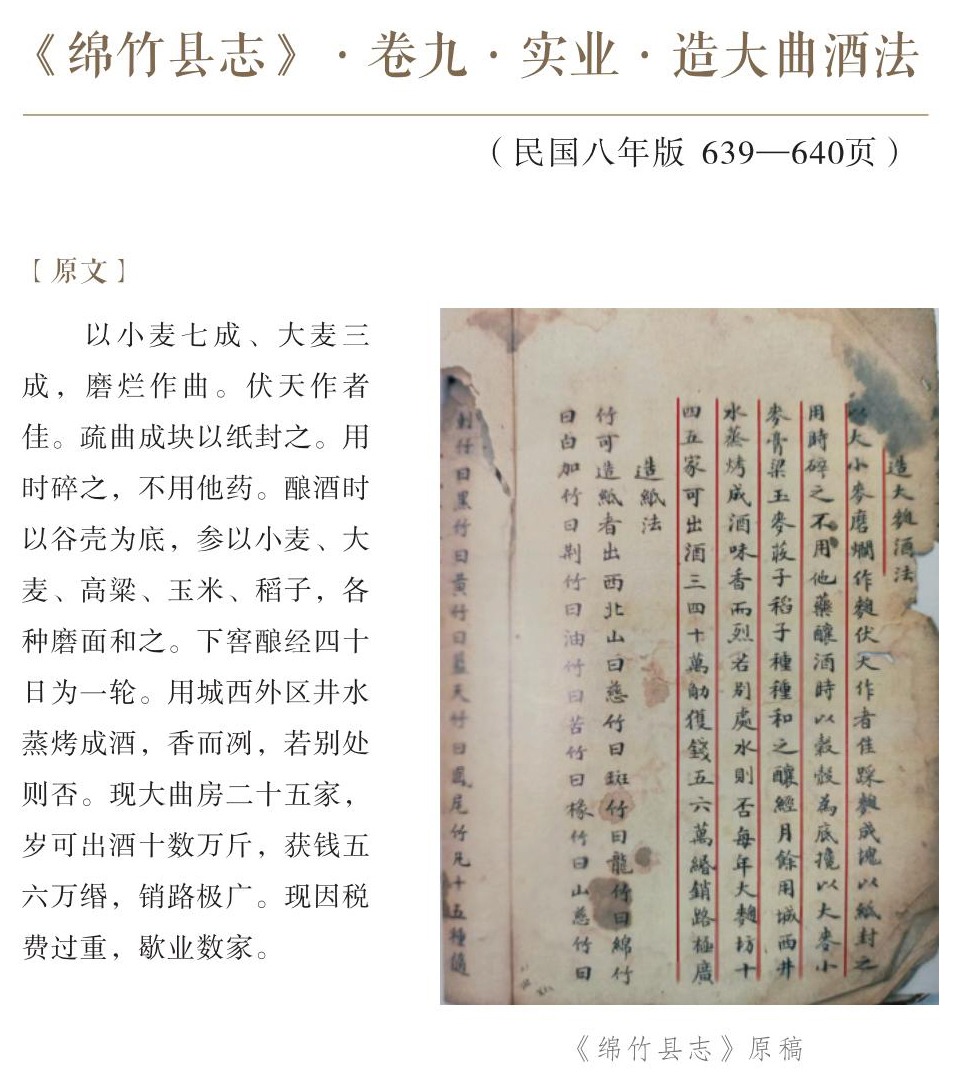 《绵竹县志》·卷九·实业·造大曲酒法
（民国八年版 639—640页）
【原文】
以小麦七成、大麦三
成，磨烂作曲。伏天作者
佳。疏曲成块以纸封之。用
时碎之，不用他药。酿酒时
以谷壳为底，参以小麦、大
麦、高粱、玉米、稻子，各
种磨面和之。下窖酿经四十
日为一轮。用城西外区井水
蒸烤成酒，香而冽，若别处
则否。现大曲房二十五家，
岁可出酒十数万斤，获钱五
六万缗，销路极广。现因税
费过重，歇业数家。
造大麯酒法
以大小麥磨爛作麯伏天作者佳踩麯成塊以紙封之
用時碎之不用他藥釀酒時以穀殼為底攙以大麥小
麥膏粱玉麥菽子稻子種種和之釀經月餘用城西井
水蒸烤成酒味香而烈若别處水則否每年大麯坊十
四五家可出酒三四十萬觔獲錢五六萬緡銷路極廣
造紙法
竹可造紙者出西北山曰慈竹曰斑竹曰龍竹曰綿竹
曰白加竹曰荆竹曰油竹曰苦竹曰椽竹曰山慈竹曰
竹曰黑竹曰黄竹曰藍天竹曰鳳尾竹凡十五種
《绵竹县志》原稿